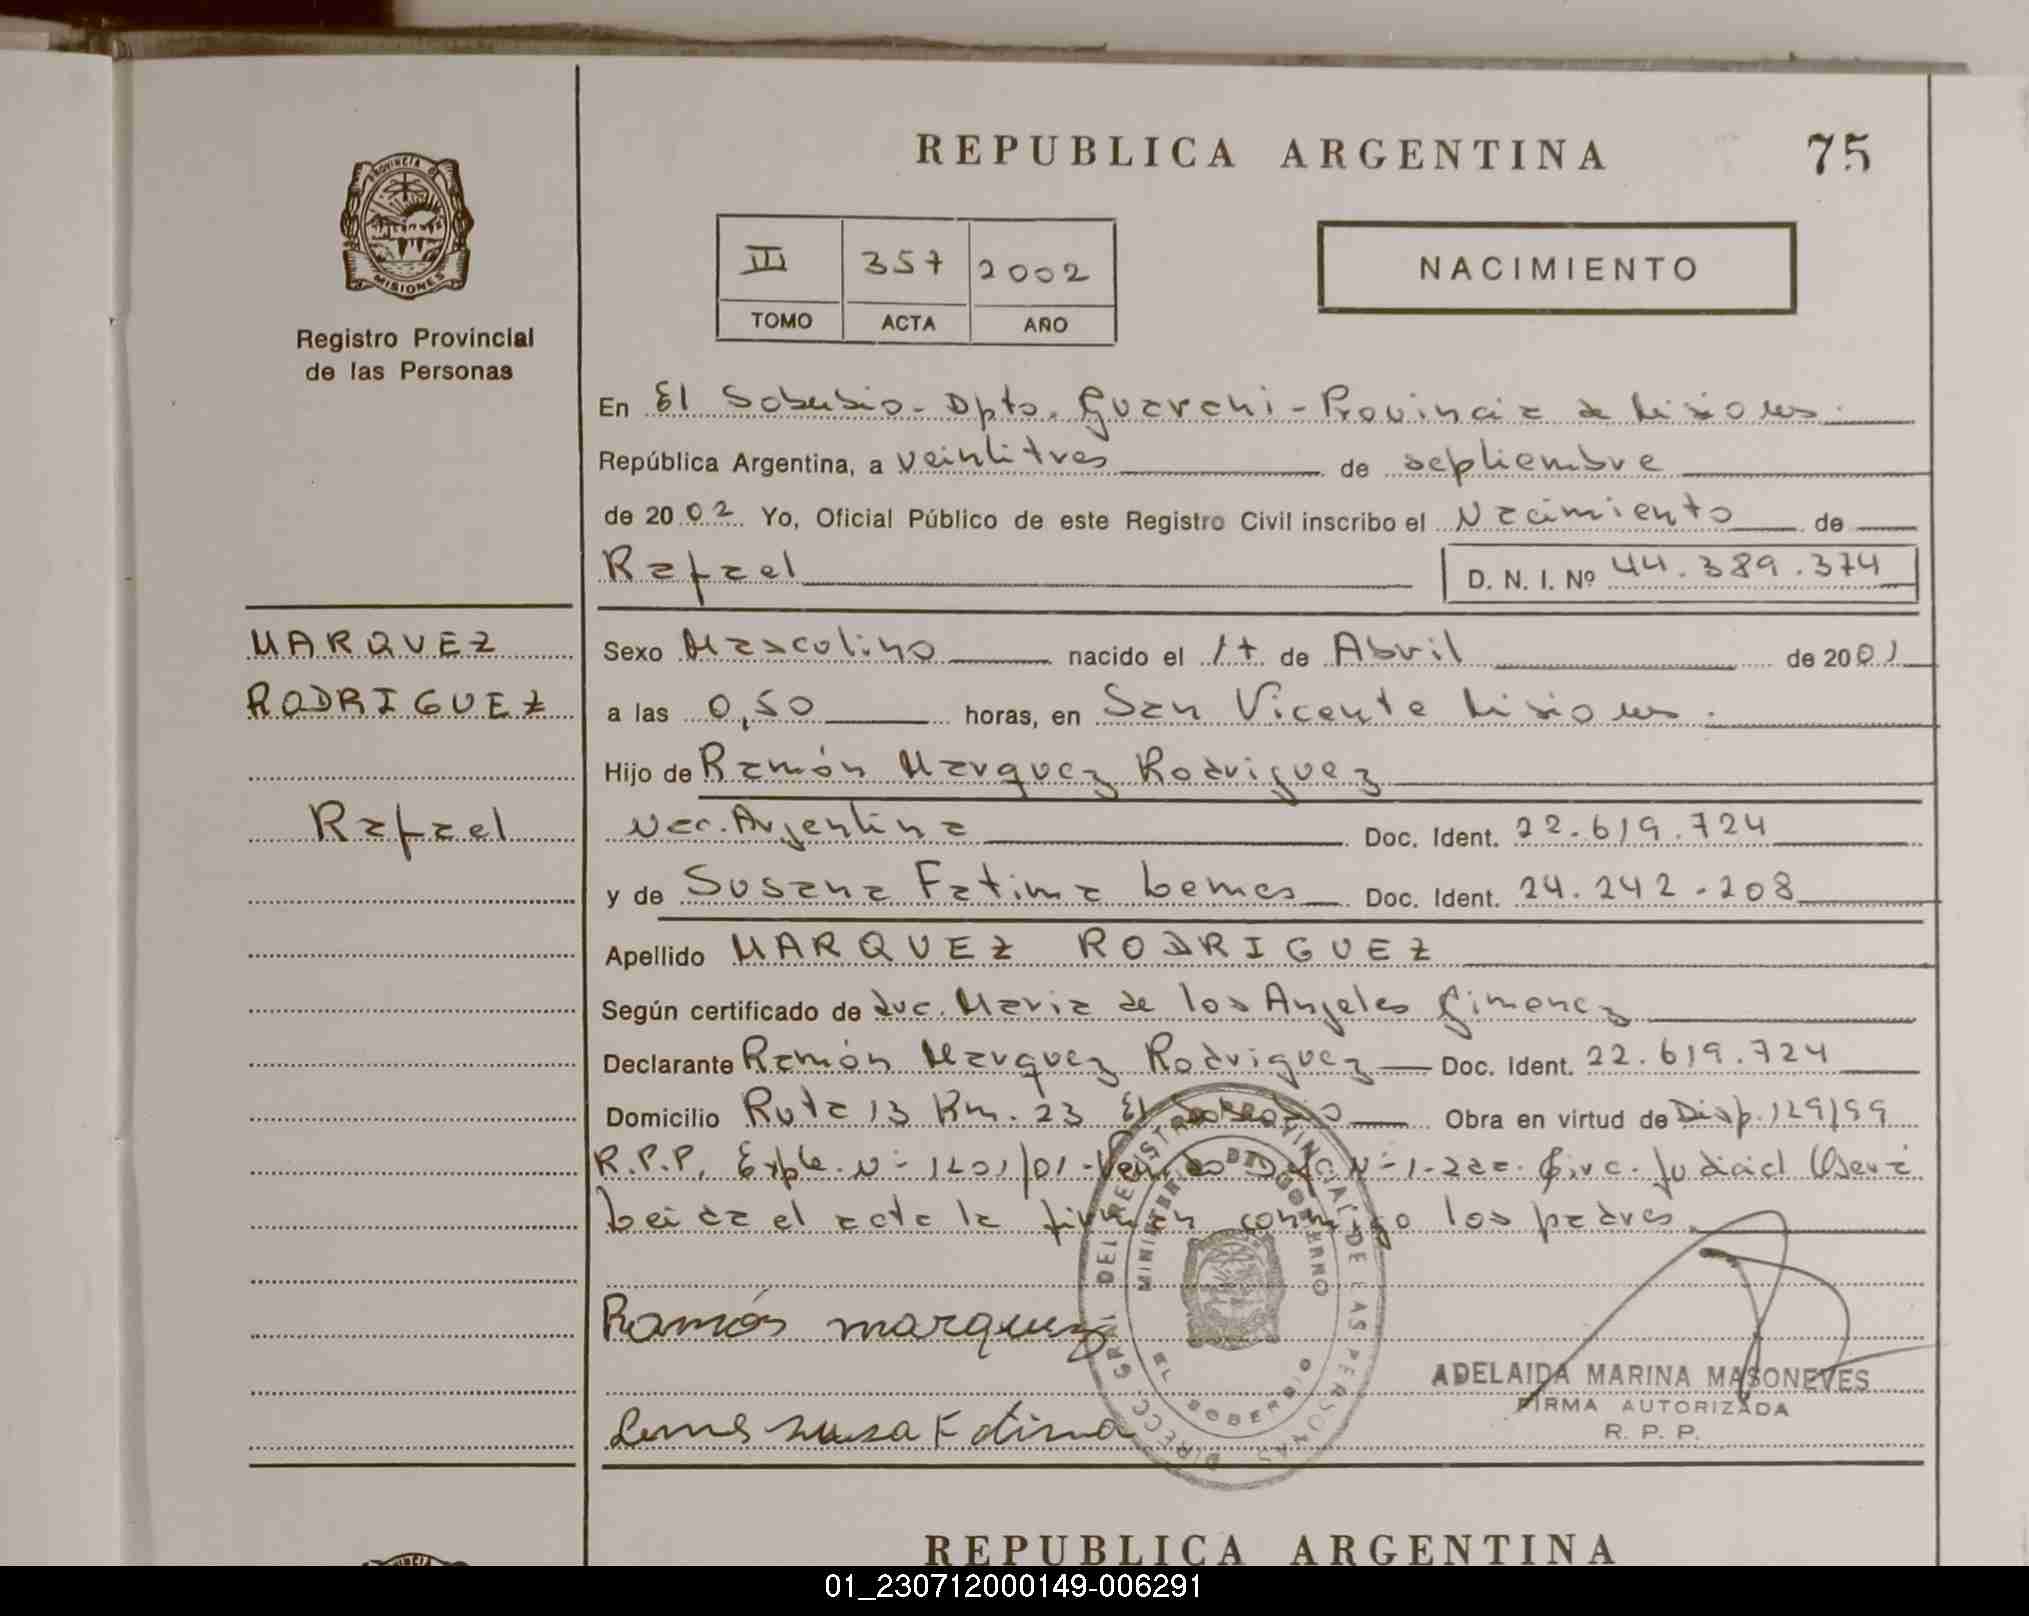 REPUBLICA ARGENTINA
75
PROVINCIA DE
MISIONES
Registro Provincial
de las Personas
III 357 2002
TOMO ACTA AÑO
NACIMIENTO
En El Soberbio - Dpto. Guarani - Provincia de Misiones.
República Argentina, a veintitres de septiembre
de 2002 Yo, Oficial Público de este Registro Civil inscribo el Nacimiento de
Rafael
D. N. I. Nº 44.389.374
MARQUEZ
RODRIGUEZ
Rafael
Sexo Masculino nacido el 17 de Abril de 2001
a las 0,50 horas, en San Vicente Misiones.
Hijo de Ramón Marquez Rodriguez
Nac. Argentina Doc. Ident. 22.619.724
y de Susana Fatima Lemes Doc. Ident. 24.242.208
Apellido MARQUEZ RODRIGUEZ
Según certificado de Maria de los Angeles Gimenez
Declarante Ramón Marquez Rodriguez Doc. Ident. 22.619.724
Domicilio Ruta 13 Km. 23 El Soberbio Obra en virtud de Disp. 129/99
R.P.P. Expte. Nº 1201/01 - Nº 1 - 2da. Circ. Judicial Oberá
Leida el acta la firman conmigo los padres
Ramón marquez
Lemes susa Fatima
DIRECC. GRAL. DEL REGISTRO PROVINCIAL DE LAS PERSONAS
MINISTERIO DE GOBIERNO
EL SOBERBIO
ADELAIDA MARINA MASONEVES
FIRMA AUTORIZADA
R. P. P.
REPUBLICA ARGENTINA
01_230712000149-006291